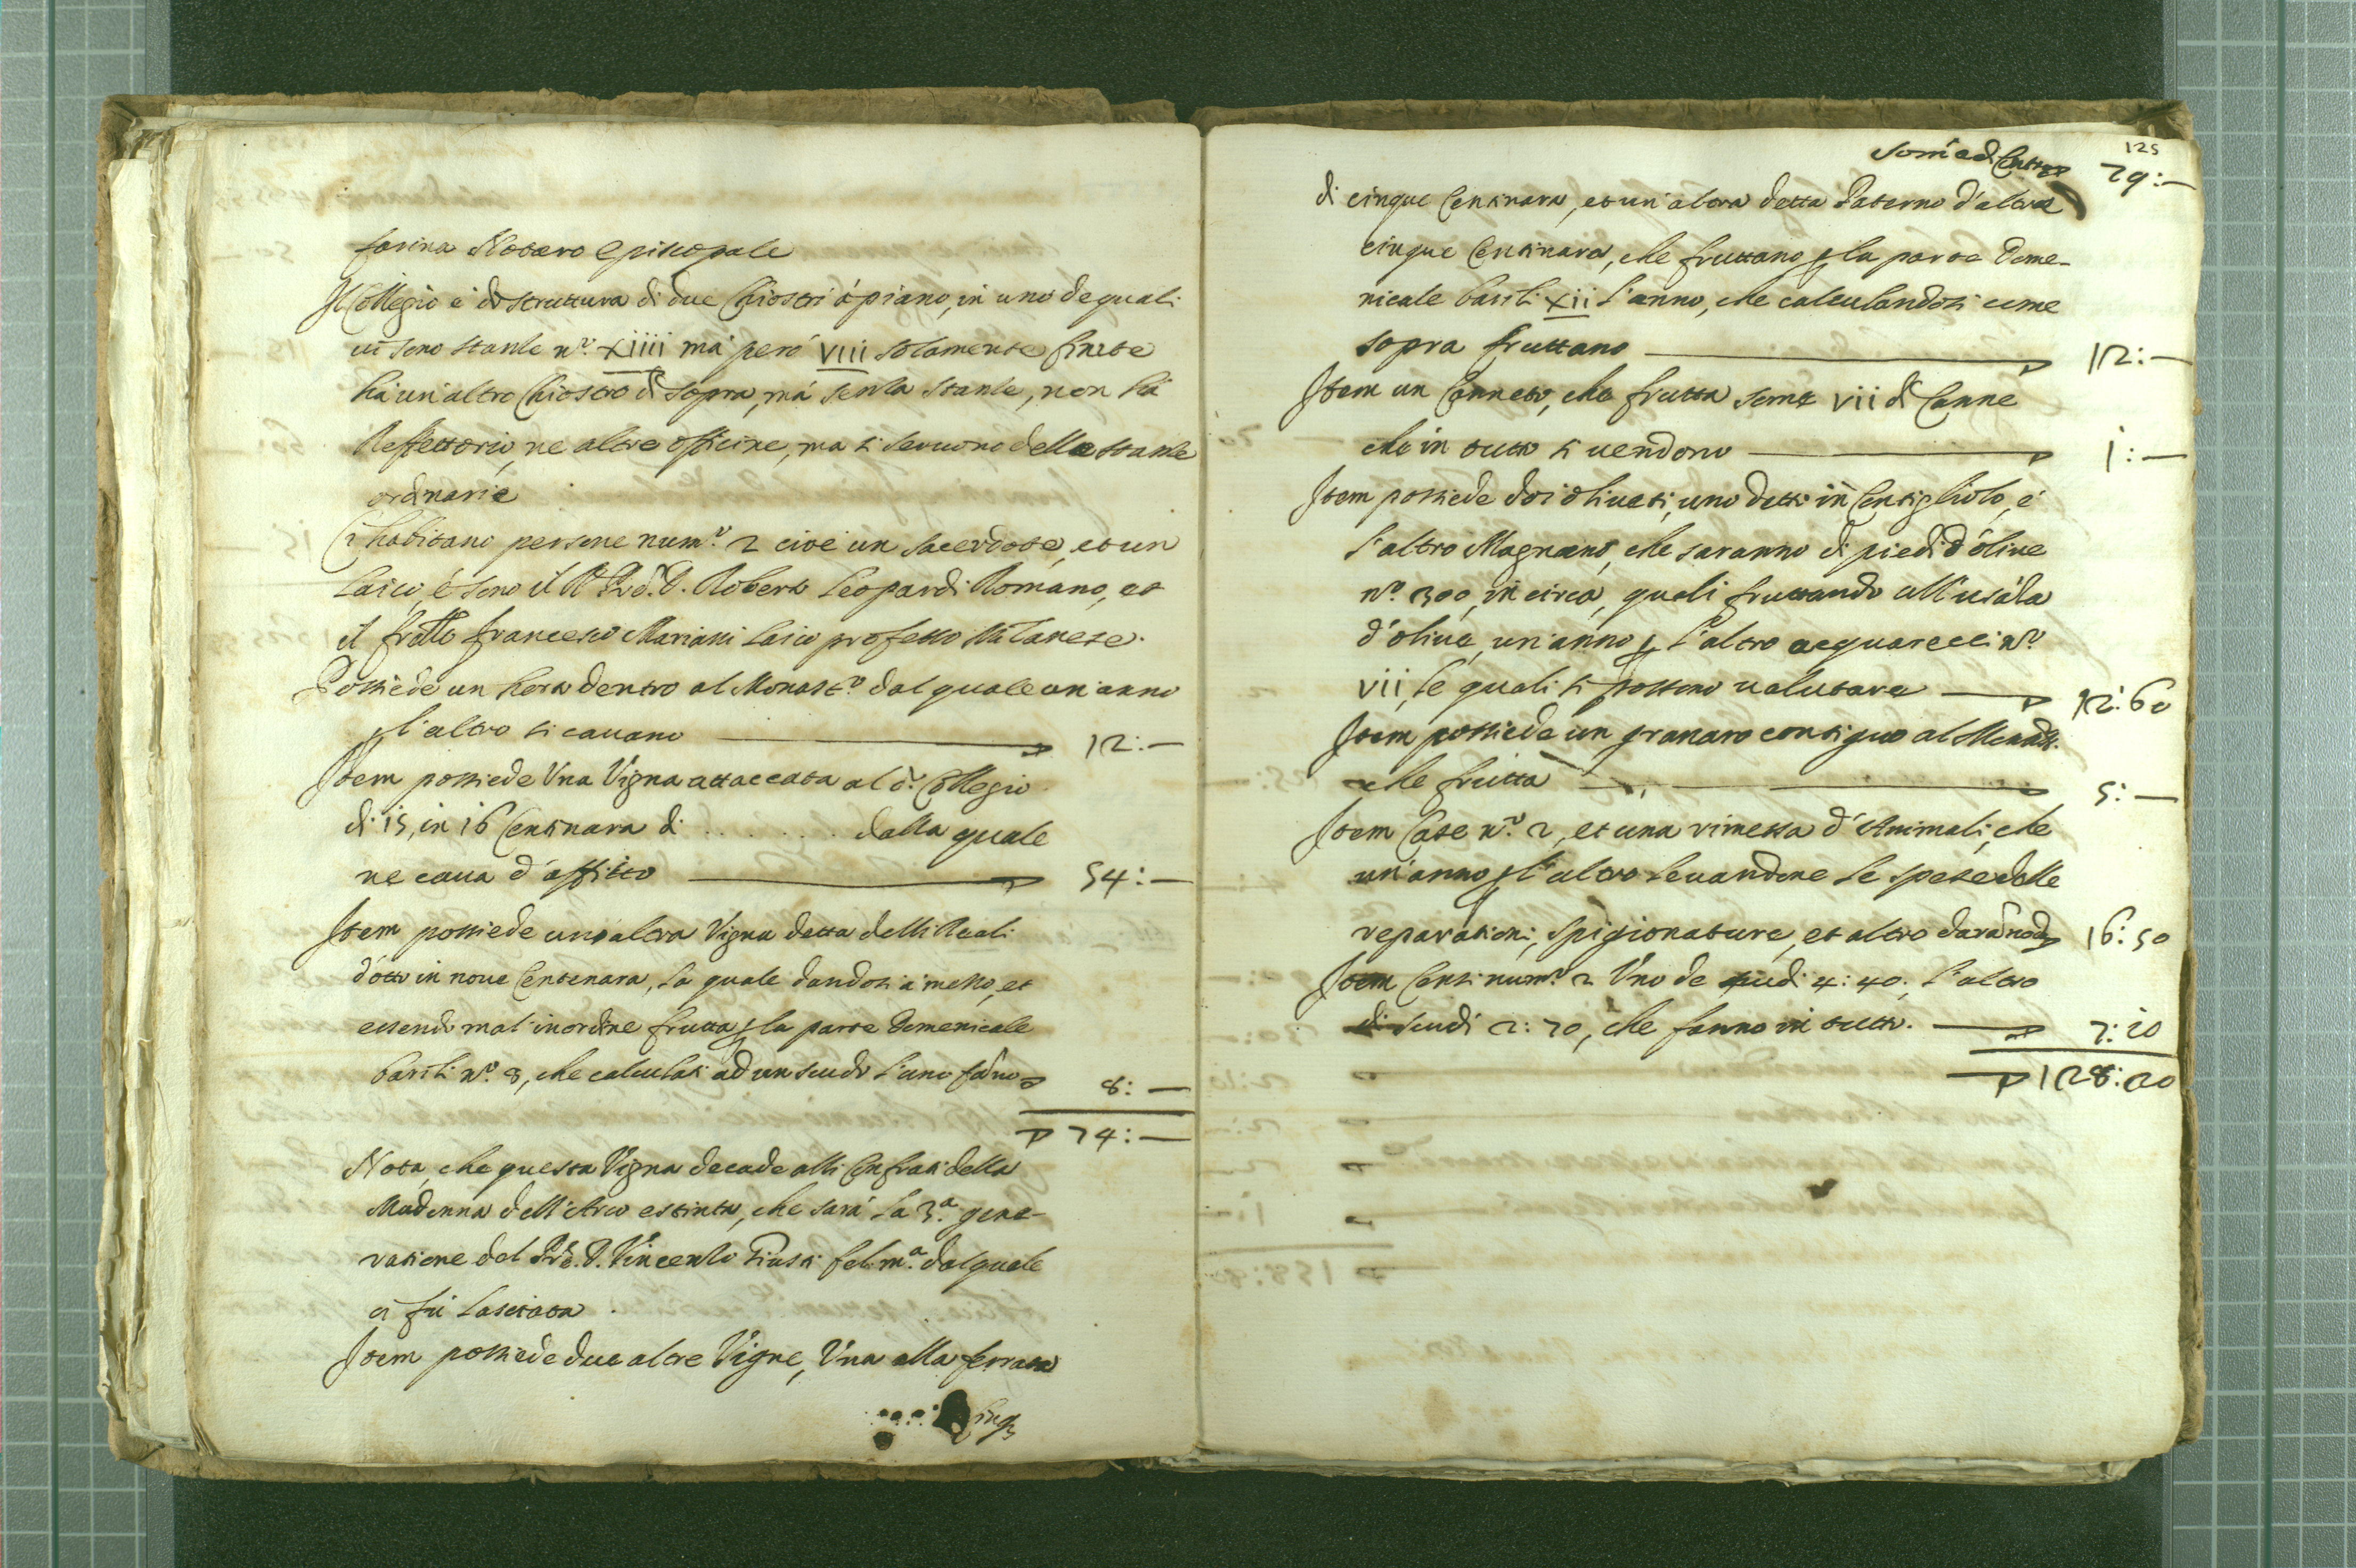 farina Notaro Episcopale
Il Collegio è di struttura di due Chiostri à piano, in uno de quali
ui sono stanze n.º XIIII mà però VIII solamente finite
hà un'altro Chiostro di sopra, mà senza stanze, non hà
Reffettorio, ne altre officine, ma si seruono delle stanze
ordinarie
Ci habitano persone num.º 2 cioè un sacerdote, et un
laico, è sono il R. Prẽ. D. Roberto Leopardi Romano, et
il frãtto francesco Mariani laico professo Milanese.
Possiede un horto dentro al Monast.º dal quale un anno
ꝑ l'altro si cauano 12:—
Item possiede Una Vigna attaccata al d.º Collegio
di 15, in 16 Centinara di ....... dalla quale
ne caua d'affitto 54:—
Item possiede uno altra Vigna detta delli Reali
d'otto in noue Centenara, la quale dandosi à mezzo, et
essendo mal'inordine frutta ꝑ la parte Domenicale
barili n.º 8, che calculati ad un scudo l'uno fãno 8:—
74:—
Nota, che questa Vigna decade alli Confrati della
Madonna dell'Arco estinta, che sarà la 3.ª gene-
ratione del Prẽ. D. Vincenzo Giusti fel. m.ª dal quale
ci fù lasciata
Item possiede due altre Vigne, Una alla ferrata
Cinq
125
Somã di Contro 79:—
di cinque Centinara, et un'altra detta Paterno d'altre
cinque Centinara, che fruttano ꝑ la parte Dome-
nicale barili XII l'anno, che calculandosi come
sopra fruttano 12:—
Item un Canneto, che frutta some VII di Canne
che in tutto si uendono 1:—
Item possiede doi oliueti, uno detto in Centigliolo, è
l'altro Magnano, che saranno di piedi d'oliue
n.º 300, in circa, quali fruttando all'usãla
d'oliue, un'anno ꝑ l'altro acquarecci n.º
VII, le quali si possono ualutare 12:60
Item possiede un granaro contiguo al Monast.
che frutta 5:—
Item Case n.º 2, et una rimessa d'Animali, che
un'anno ꝑ l'altro leuandone le spese delle
reparationi, spigionature, et altro darãno 16:50
Item Censi num.º 2 Uno de scudi 4:40. l'altro
di scudi 2:70, che fanno in tutto. 7:10
128:20